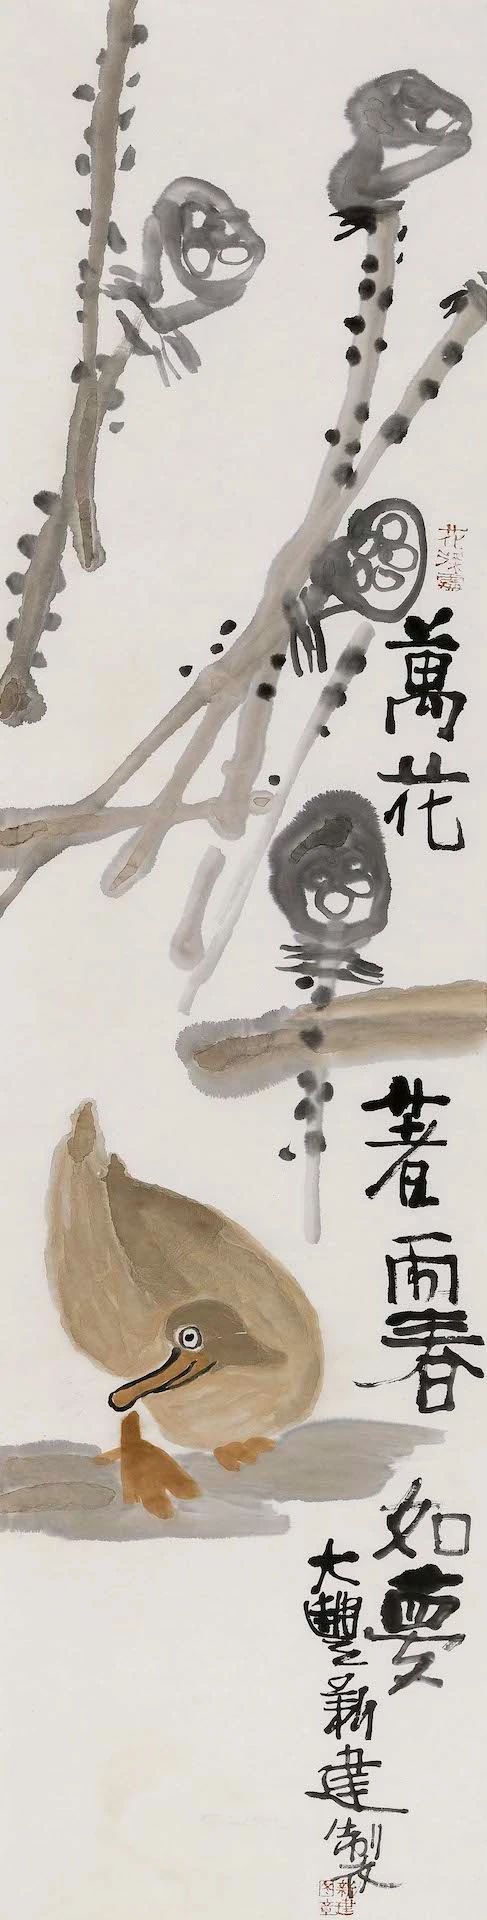 花深處
萬花著雨春如夢
大豐新建製
新建
图章